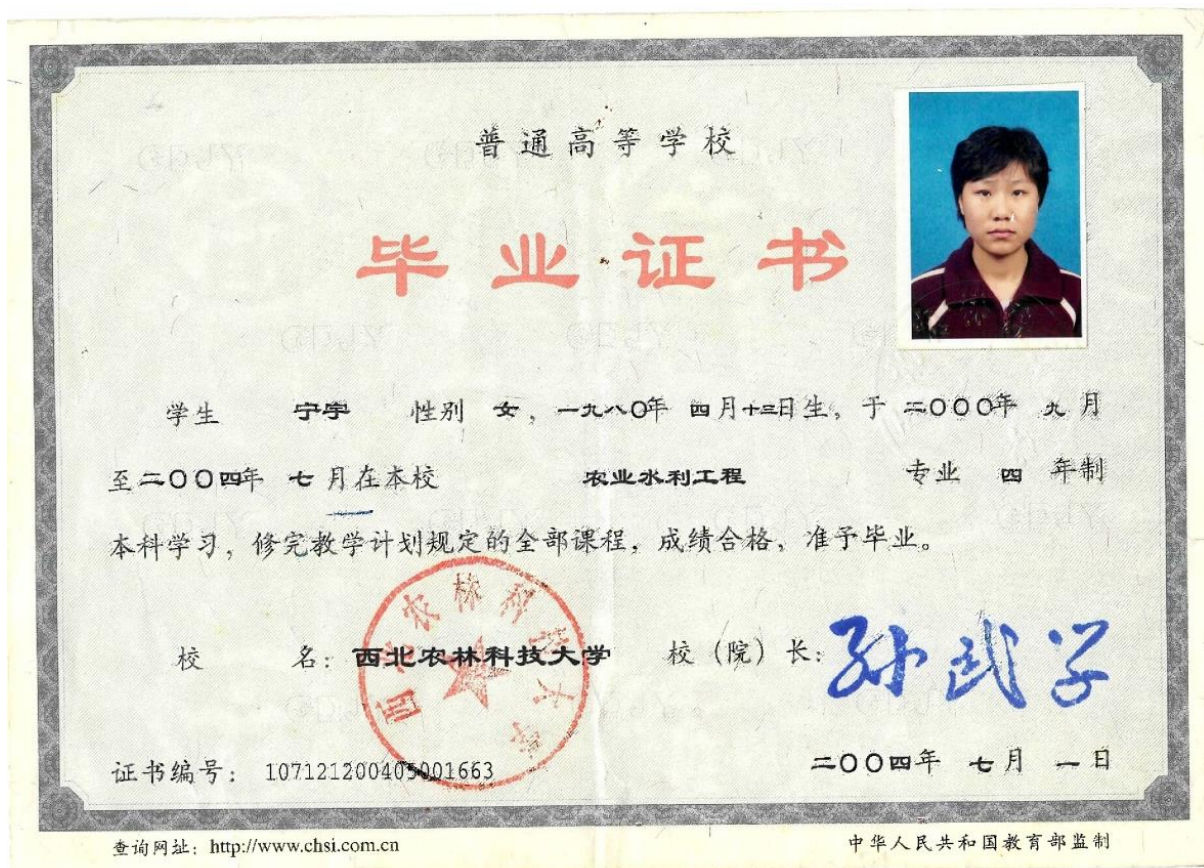 普通高等学校
毕业证书
学生 宁宇 性别 女，一九八〇年 四月十三日生，于 二〇〇〇年 九月
至二〇〇四年 七月在本校 农业水利工程 专业 四 年制
本科学习，修完教学计划规定的全部课程，成绩合格，准予毕业。
校 名：西北农林科技大学 校（院）长：孙武学
西北农林科技大学
证书编号：107121200405001663 二〇〇四年 七月 一日
查询网址：http://www.chsi.com.cn 中华人民共和国教育部监制